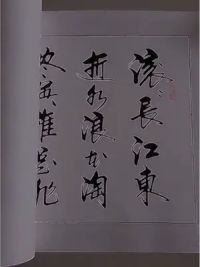 滚滚長江東
逝水浪花淘
尽英雄是非